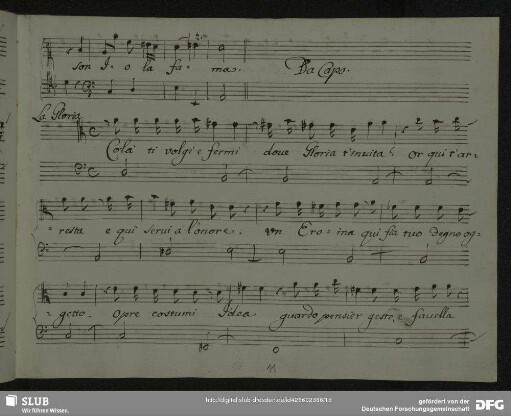 son Io la fa- ma. Da Capo.
La Gloria
Colà ti volgi e fermi dove Gloria t'invita! or qui t'ar-
-resta e qui servi a l'onore. Un Ero-ina qui fia tuo degno og-
-getto. Opre costumi Idea. guardo pensier gesto, e favella
11
SLUB
Wir führen Wissen.
gefördert von der
Deutschen Forschungsgemeinschaft
DFG